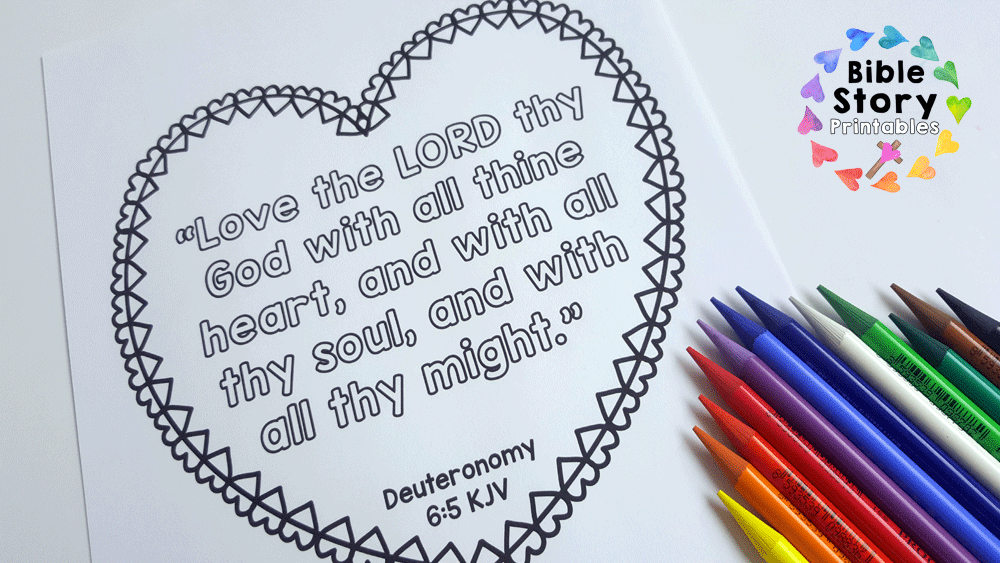 “Love the LORD thy
God with all thine
heart, and with all
thy soul, and with
all thy might.”
Deuteronomy
6:5 KJV
Bible
Story
Printables